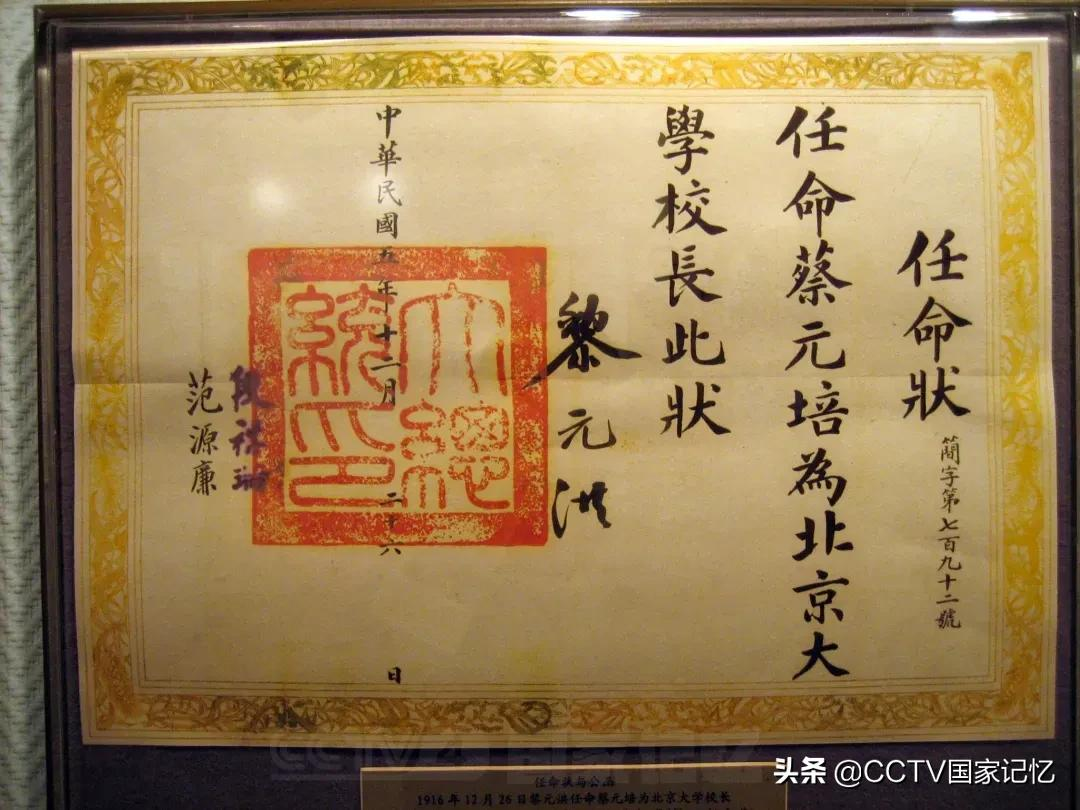 任命狀
簡字第七百九十二號
任命蔡元培為北京大
學校長此狀
黎元洪
大總
統印
中華民國五年十二月二十六日
段祺瑞
范源廉
任命状与公函
1916年12月26日黎元洪任命蔡元培为北京大学校长
头条 @CCTV国家记忆